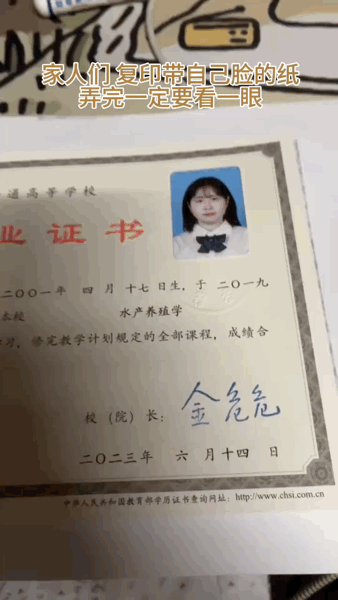 家人们 复印带自己脸的纸
弄完一定要看一眼
通高等学校
业证书
二〇〇一年 四 月 十七 日生，于 二〇一九
本校 水产养殖学
学习，修完教学计划规定的全部课程，成绩合
校（院）长：
二〇二三年 六 月十四 日
中华人民共和国教育部学历证书查询网址：http://www.chsi.com.cn